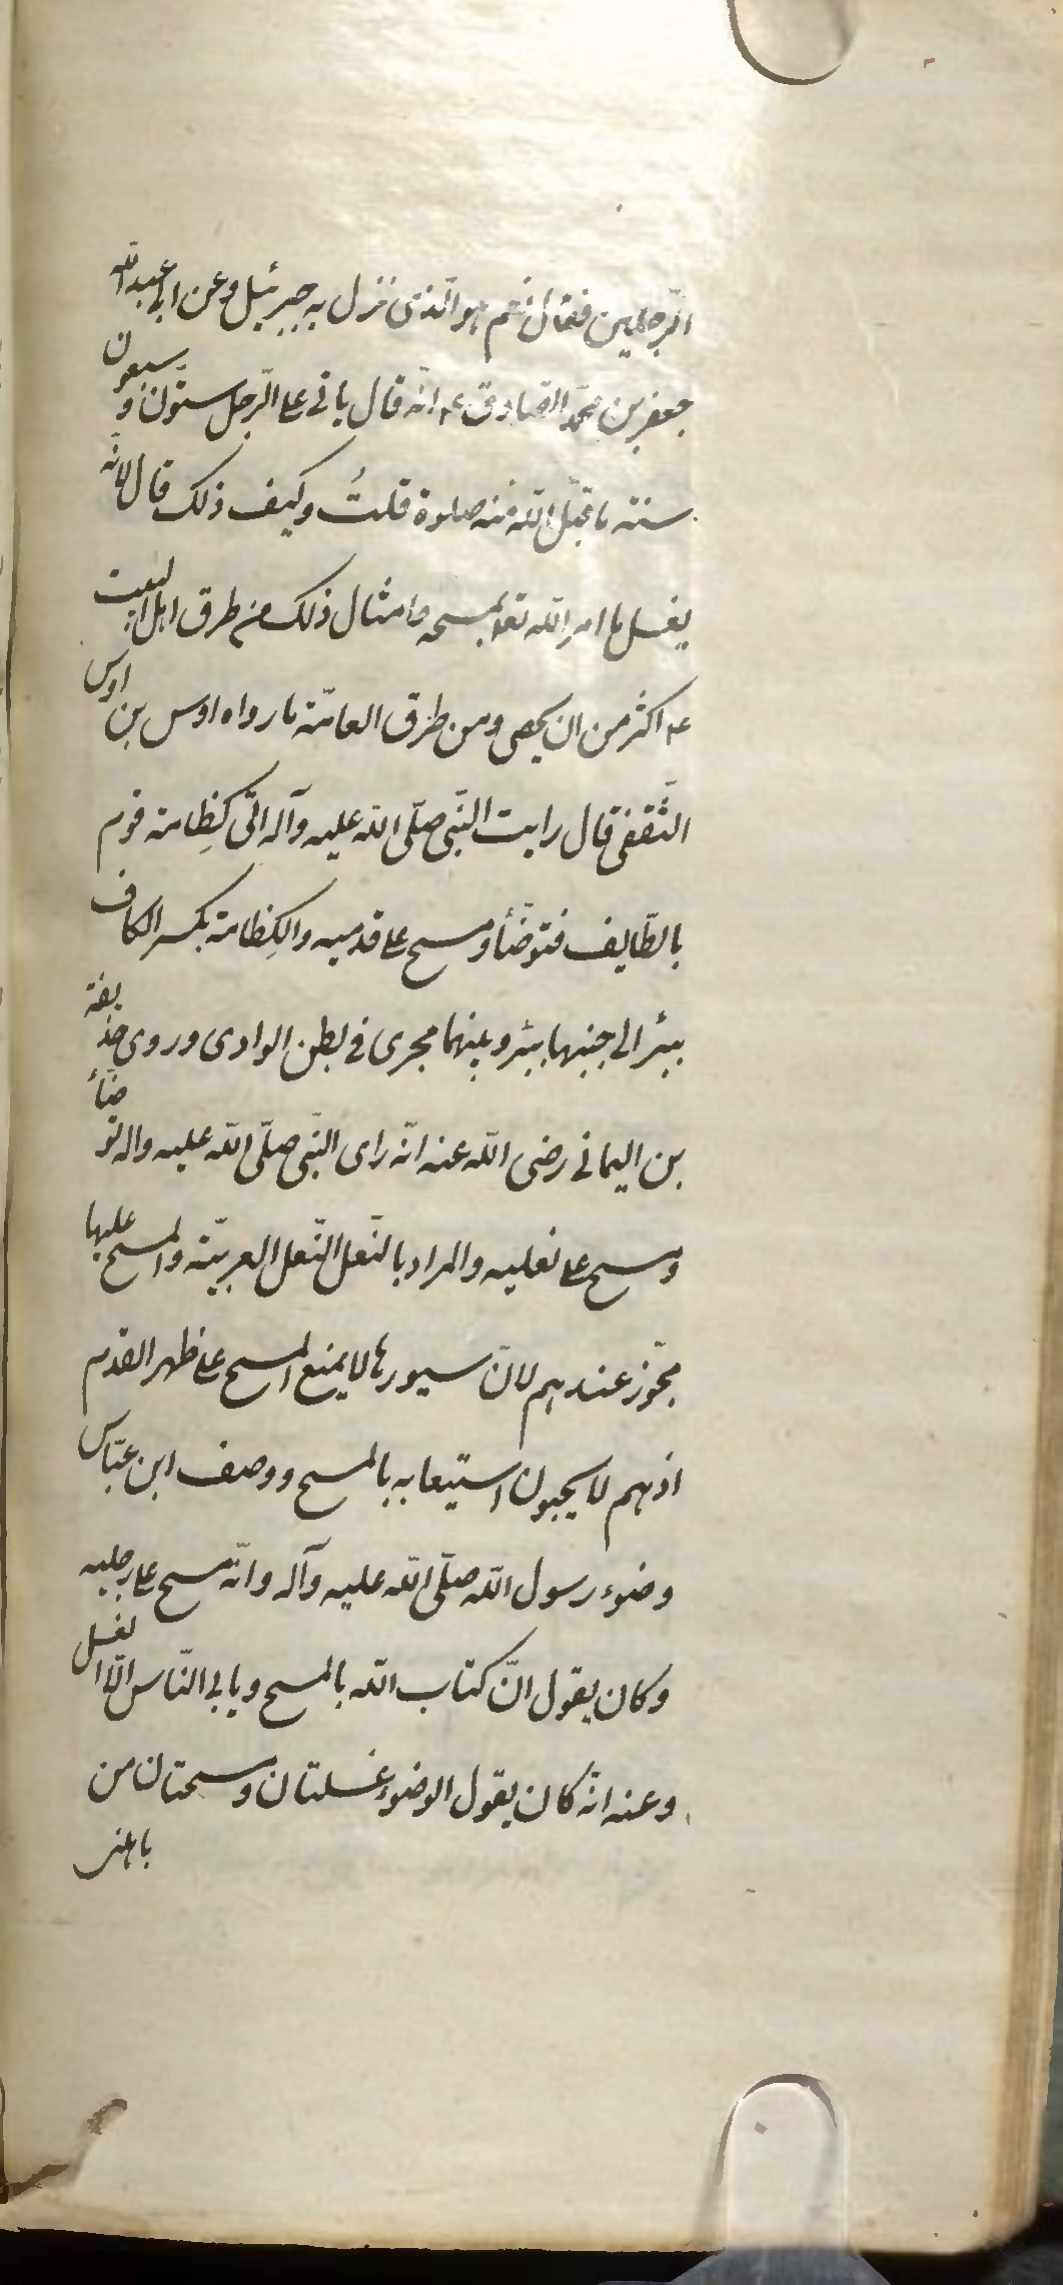 الرّجلين فقال نعم هو الّذى نزل به جبرئيل وعن ابى عبد الله
جعفر بن محمّد الصّادق ع انّه قال ياتى على الرّجل ستّون و سبعون
سنة ما قبل الله منه صلوة قلتُ وكيف ذلك قال لانّه
يغسل ما امر الله تعه بمسحه وامثال ذلك من طرق اهل البيت
ع اكثر من ان يحصى ومن طرق العامّة ما رواه اوس بن اوس
الثّقفى قال رايت النّبى صلّى الله عليه وآله اتى كِظامة قوم
بالطّايف فتوضّأ ومسح على قدميه والكِظامة بكسر الكاف
بيئر الى جنبها بيئر وبينهما مجرى فى بطن الوادى وروى حذيفة
بن اليمانى رضى الله عنه انّه راى النّبى صلّى الله عليه واله توضّأ
ومسح على نعليه والمراد بالنّعل النّعل العربيّة والمسح عليها
مجّوز عندهم لانّ سيورها لا يمنع المسح على ظهر القدم
اذ هم لا يجبون استيعابه بالمسح ووصف ابن عبّاس
وضوء رسول الله صلّى الله عليه وآله وانّه مسح على رجليه
وكان يقول انّ كتاب الله بالمسح ويابى النّاس الّا الغسل
وعنه انّه كان يقول الوضوء غسلتان ومسحتان من
باهلنى